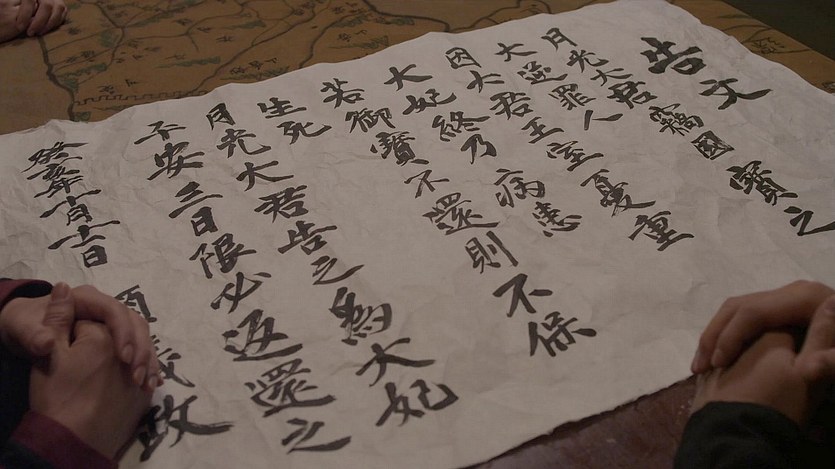 告文
竊國寶之
月光大君
大逆罪人
因大君王室憂重
大妃終乃病患
若御寶不還則不保
生死
月光大君告之為大妃
不安三日限必返還之
癸亥年十月十一日
領議政